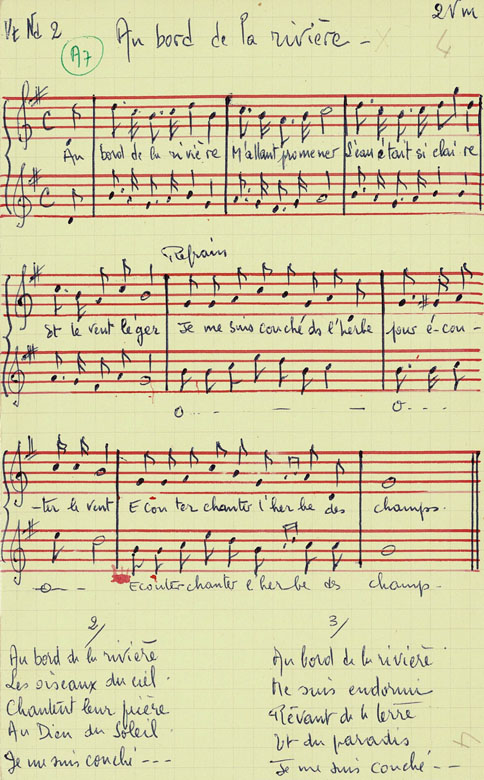 Vt Nd 2
2Vm
A7
Au bord de la rivière -
4
Au bord de la rivière M'allant promener L'eau était si clai re
Refrain
Et le vent léger Je me suis couché ds l'herbe pour é-cou-
o - - - — — o - - - -
-ter le vent Ecou ter chanter l'her be des champs.
-o- - Ecouter chanter l'her be des champs -
2/
Au bord de la rivière
Les oiseaux du ciel
Chantent leur prière
Au Dieu du Soleil
Je me suis couché ---
3/
Au bord de la rivière
Me suis endormi
Rêvant de la terre
Et du paradis
Je me suis couché ---